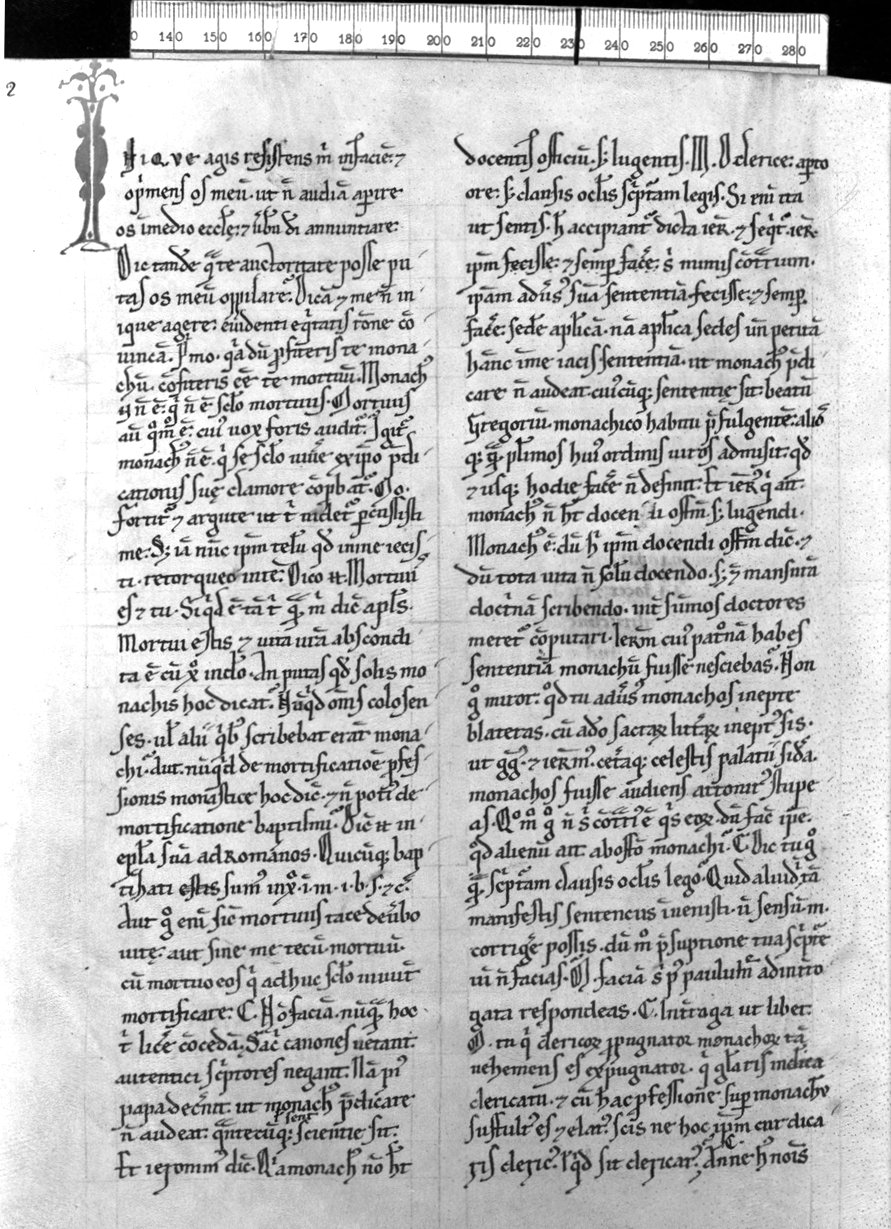 0 140 150 160 170 180 190 200 210 220 230 240 250 260 270 280
2
Iniq̨ve agis resistens m̄ infacie: ⁊
op̄mens os meū. ut n̄ audiā aperire
os īmedio eccl̄ę: ⁊ ūbū dī annuntiare:
Dic tandē q̄ te auctoritate posse pu
tas os meū oppilare. Dicā ⁊ me n̄ in
ique agere: euidenti eq̄tatis r̄one cō
uincā. P̄mo. q̄a dū p̄fiteris te mona
chū. cōfiteris eē te mortuū. Monachꝰ
n̄ ē: q̄ n̄ ē sc̄lo mortuus. Mortuus
aū qͦm̊ ē: cuiꝰ uox foris audit̄. Igit̄
monachꝰ n̄ ē. q̄ se sc̄lo uiuē ex ip̄o p̄di
cationis suę clamore cōp̄bat̄. M̊.
fortit̄ ⁊ argute ut t̄ uidet̄ p̄cussisti
me. S; iā nūc ip̄m telū qd̄ inme iecis
ti. retorqueo inte. Dico n̄. Mortuꝰ
es ⁊ tu. Siq̄d ē tā t̄ q̄ m̄ dic̄ apl̄s.
Mortui estis ⁊ uita ur̄a abscondi
ta ē cū x̄o indō. An putas qd̄ solis mo
nachis hoc dicat̄. Nūq̄d om̄s colosen
ses. ul̄ alii q̄bꝰ scribebat erāt mona
chi. Aut nūq̄d de mortificatiōe p̄fes
sionis monastice hoc dic̄. ⁊ n̄ potiꝰ de
mortificatione baptismi. Dic̄ n̄ in
epl̄a sua ad Romanos. Quicūq; bap
tizati estis sumꝰ inx̄o. ī. m. i. b. s. ⁊ c̄.
Aut g̊ enī sic̄ mortuus tace deūbo
uitę: aut sine me tecū mortuū.
cū mortuo eos q̄ adhuc sc̄lo uiuūt
mortificare: C. Nō faciā. nūq̄. hoc
t̄ licē cōcedā. Sac̄ canones uetant.
autentici sc̄ptores negant. Nā piꝰ
papa decn̄it. ut monachꝰ p̄dicare
n̄ audeat. q̄ntecūq; scientie sit.
Et ieronimꝰ dic̄. Q̄a monachꝰ nō ht̄
docentis officiū. s; lugentis. M. O clerice: apto
ore: s; clausis oclis sc̄ptam legis. Si enī ita
ut sentis. h̄ accipiant̄ dicta ier̄. ⁊ seq̄t̄. ier̄.
ip̄m fecisse: ⁊ semp̄ facē: s̄ nimis cōt̄rium.
ip̄am adūsꝰ suā sententiā fecisse: ⁊ semp̄
facē: sedē aplicā. nā aplica sedes un̄ petitā
hanc inme iacis sententiā. ut monachꝰ p̄di
care n̄ audeat. cuiꝰcūq; sententię sit: beatū
Gregoriū. monachico habitu p̄fulgentē: alios
q; q̄ plimos huiꝰ ordinis uiros admisit: qd̄
⁊ usq; hodie facē n̄ definit. Et ier̄ꝰ q̄ ait.
monachꝰ n̄ ht̄ docendi offm̄. s; lugendi.
Monachꝰ ē: dū h̄ ip̄m docendi offm̄ dic̄. ⁊
dū tota uita n̄ solū docendo. s; ⁊ mansurā
doct̄nā scribendo. int̄ sūmos doctores
meret̄ cōputari. Ierm̄ cuiꝰ pat̄nā habes
sententiā monachū fuisse nesciebas. Non
g̊ miror. qd̄ tu adūsꝰ monachos inepte
blateras. cū adō sacraꝝ litt̄aꝝ ineptꝰ sis.
ut gg̊. ⁊ ierm̄ꝰ. cet̄aq; celestis palatii sid̄a.
monachos fuisse audiens attonitꝰ stupe
as. Qͦm̊ g̊ n̄ s̄ cōt̄riē q̄s eoꝝ. dū facē ip̄e.
qd̄ alienū ait. aboff̄o monachi. C. Dic tu g̊
q̄ sc̄ptam clausis oclis lego. Quid aliud tā
manifestis sententiis īuenisti. ū sensū. m.
corrigē possis. dū m̊ p̄suptione tua sc̄pt̄e
uī n̄ facias. M. faciā s; pꝰ paululū. adint̄ro
gata respondeas. C. Int̄roga ut libet.
M. tu q̄ clericoꝝ p̄pugnator monachoꝝ tā
uehemens es expugnator. q̄ gl̄aris indica
clericatu. ⁊ cū hac p̄fessione sup̄ monachos
sustultꝰ es ⁊ elatꝰ. scis ne hoc ip̄m cur dica
ris clericꝰ. l̄ q̄d sit clericatꝰ. C. Anne hꝰ nois